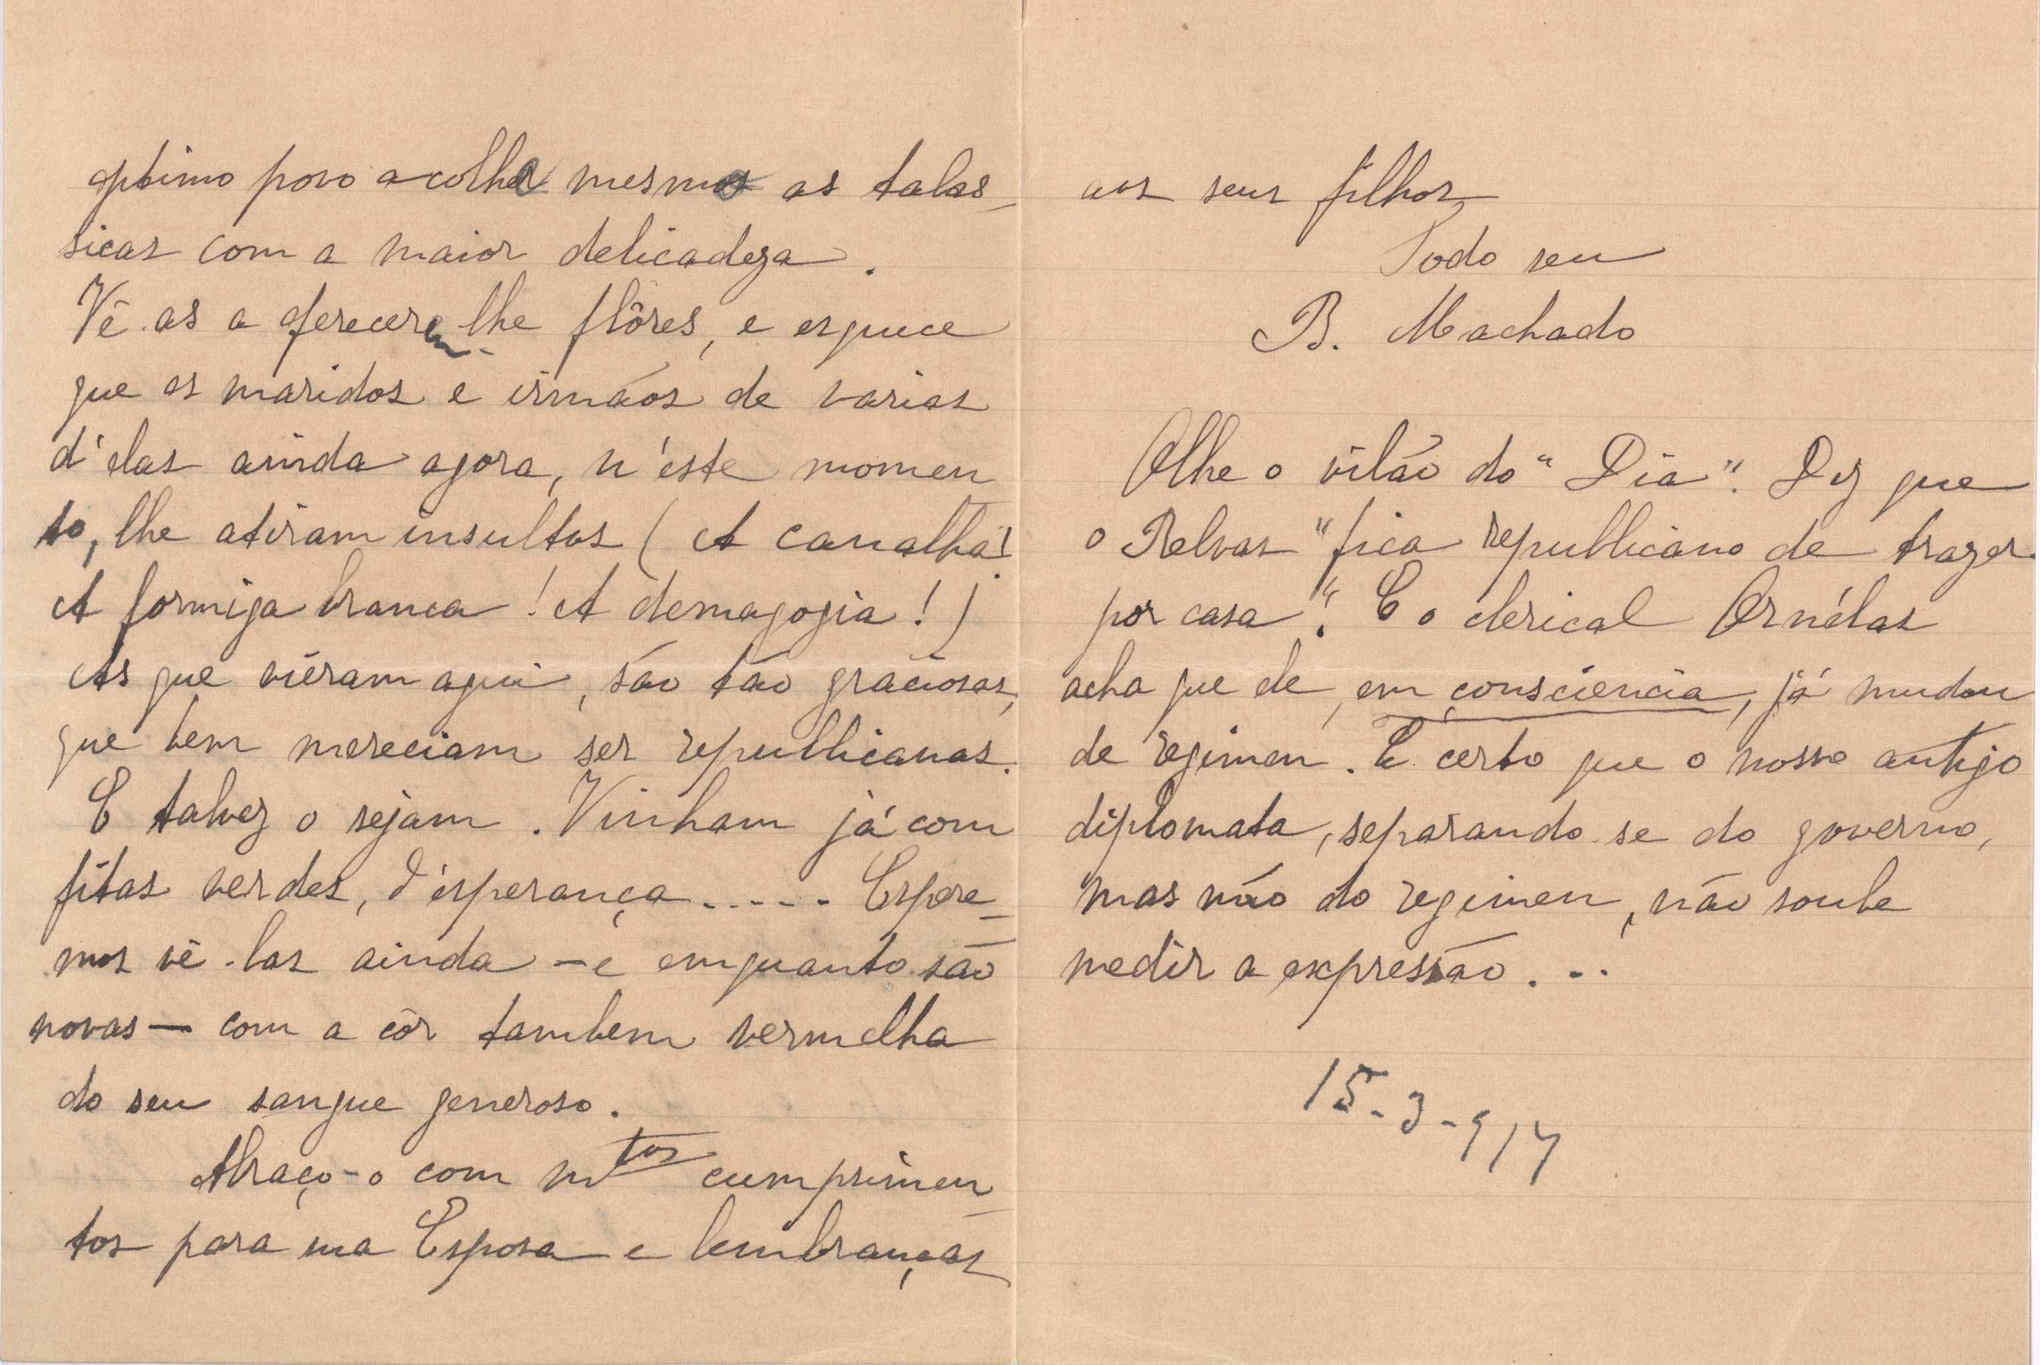 optimo povo acolhe mesmo as talas-
sicas com a maior delicadeza.
Vê-as a oferecerem-lhe flôres, e esquece
que os maridos e irmãos de varias
d'elas ainda agora, n'este momen
to, lhe atiram insultos (A canalha!
A formiga branca! A demagogia!)
As que viéram aqui, são tão graciosas,
que bem mereciam ser republicanas.
E talvez o sejam. Vinham já com
fitas verdes, d'esperança..... Espere-
mos vê-las ainda - e emquanto são
novas - com a côr tambem vermelha
do seu sangue generoso.
Abraço-o com mtos cumprimen-
tos para sua Esposa e lembranças
aos seus filhos
Todo seu
B. Machado
Olhe o vilão do "Dia". Diz que
o Relvas "fica republicano de trazer
por casa". E o clerical Ornélas
acha que ele, em consciencia, já mudou
de regimen. É certo que o nosso antigo
diplomata, separando-se do governo,
mas não do regimen, não soube
medir a expressão...
15-3-914